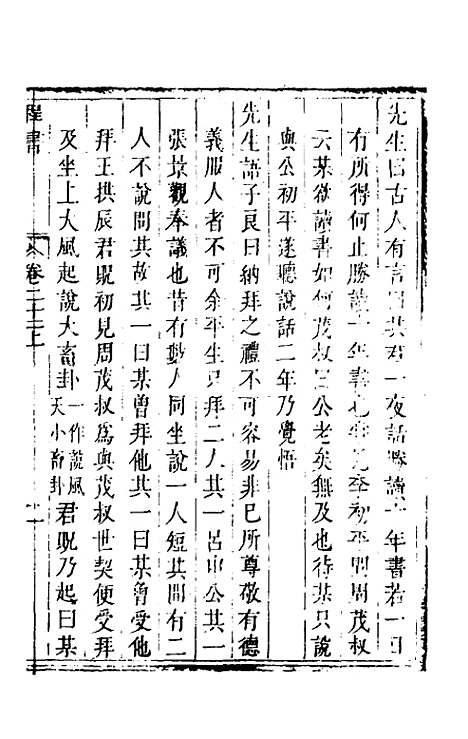 先生曰古人有言曰共君一夜話勝讀十年書若一日
有所得何止勝讀十年書也嘗見李初平問周茂叔
云某欲讀書如何茂叔曰公老矣無及也待某只說
與公初平遂聽說話二年乃覺悟
先生語子良曰納拜之禮不可容易非己所尊敬有德
義服人者不可余平生只拜二人其一呂申公其一
張景觀奉議也昔有數人同坐說一人短其間有二
人不說問其故其一曰某曾拜他其一曰某曾受他
拜王拱辰君貺初見周茂叔爲與茂叔世契便受拜
及坐上大風起說大畜卦一作說風天小畜卦君貺乃起曰某
程書 卷二十二上